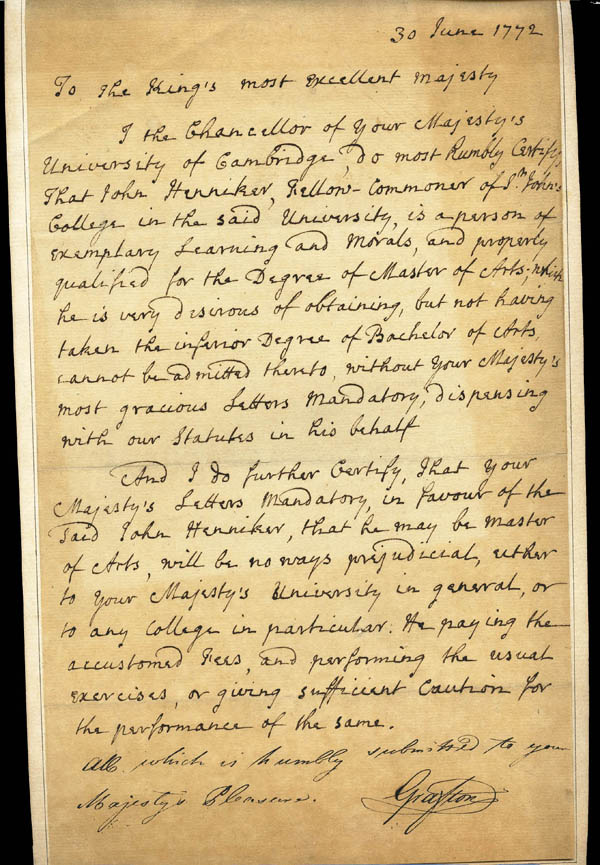 30 June 1772
To the King's most Excellent Majesty
I the Chancellor of Your Majesty's
University of Cambridge, do most Humbly Certify,
That John Henniker, Fellow-Commoner of St. John's
College in the said University, is a person of
exemplary Learning and Morals, and properly
qualified for the Degree of Master of Arts; which
he is very disirous of obtaining, but not having
taken the inferior Degree of Bachelor of Arts,
cannot be admitted thereto, without Your Majesty's
most gracious Letters Mandatory, dispensing
with our Statutes in his behalf
And I do further Certify, That Your
Majesty's Letters Mandatory, in favour of the
Said John Henniker, that he may be Master
of Arts, will be no ways prejudicial, either
to Your Majesty's University in general, or
to any College in particular. He paying the
accustomed Fees, and performing the usual
exercises, or giving sufficient Caution for
the performance of the same.
All which is humbly submitted to your
Majesty's Pleasure. Grafton